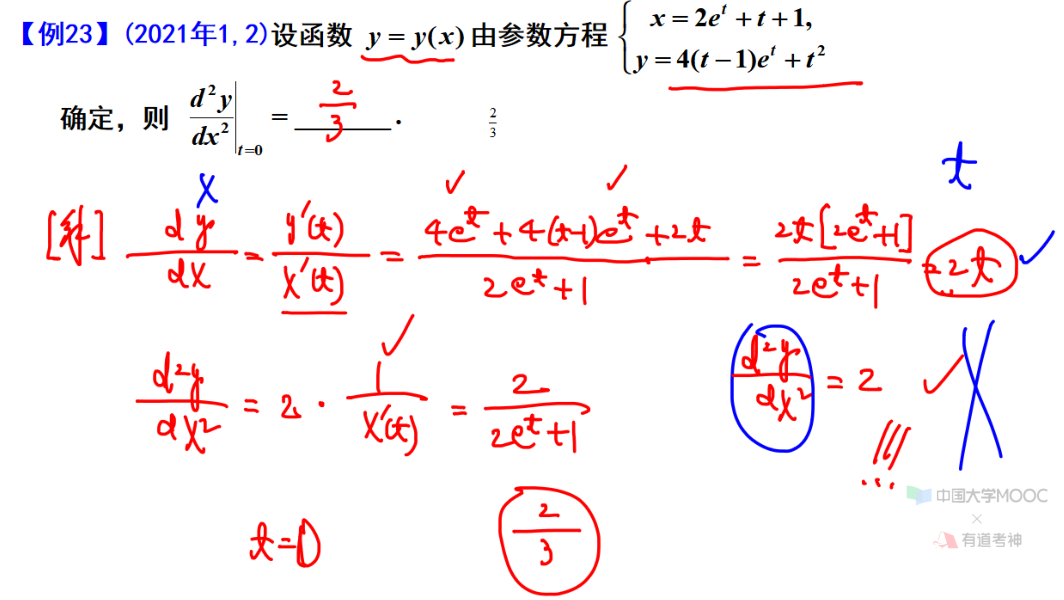 【例23】(2021年1,2)设函数 y = y(x) 由参数方程 { x = 2e^t + t + 1,
y = 4(t − 1)e^t + t^2
确定，则 d^2y/dx^2 |_{t=0} = 2/3 . 2/3
x t
[解] dy/dx = y'(t)/x'(t) = (4e^t + 4(t-1)e^t + 2t)/(2e^t + 1) = 2t[2e^t + 1]/(2e^t + 1) = 2t
d^2y/dx^2 = 2 · 1/x'(t) = 2/(2e^t + 1) d^2y/dx^2 = 2
!!!
t = 0 2/3
中国大学MOOC
×
有道考神